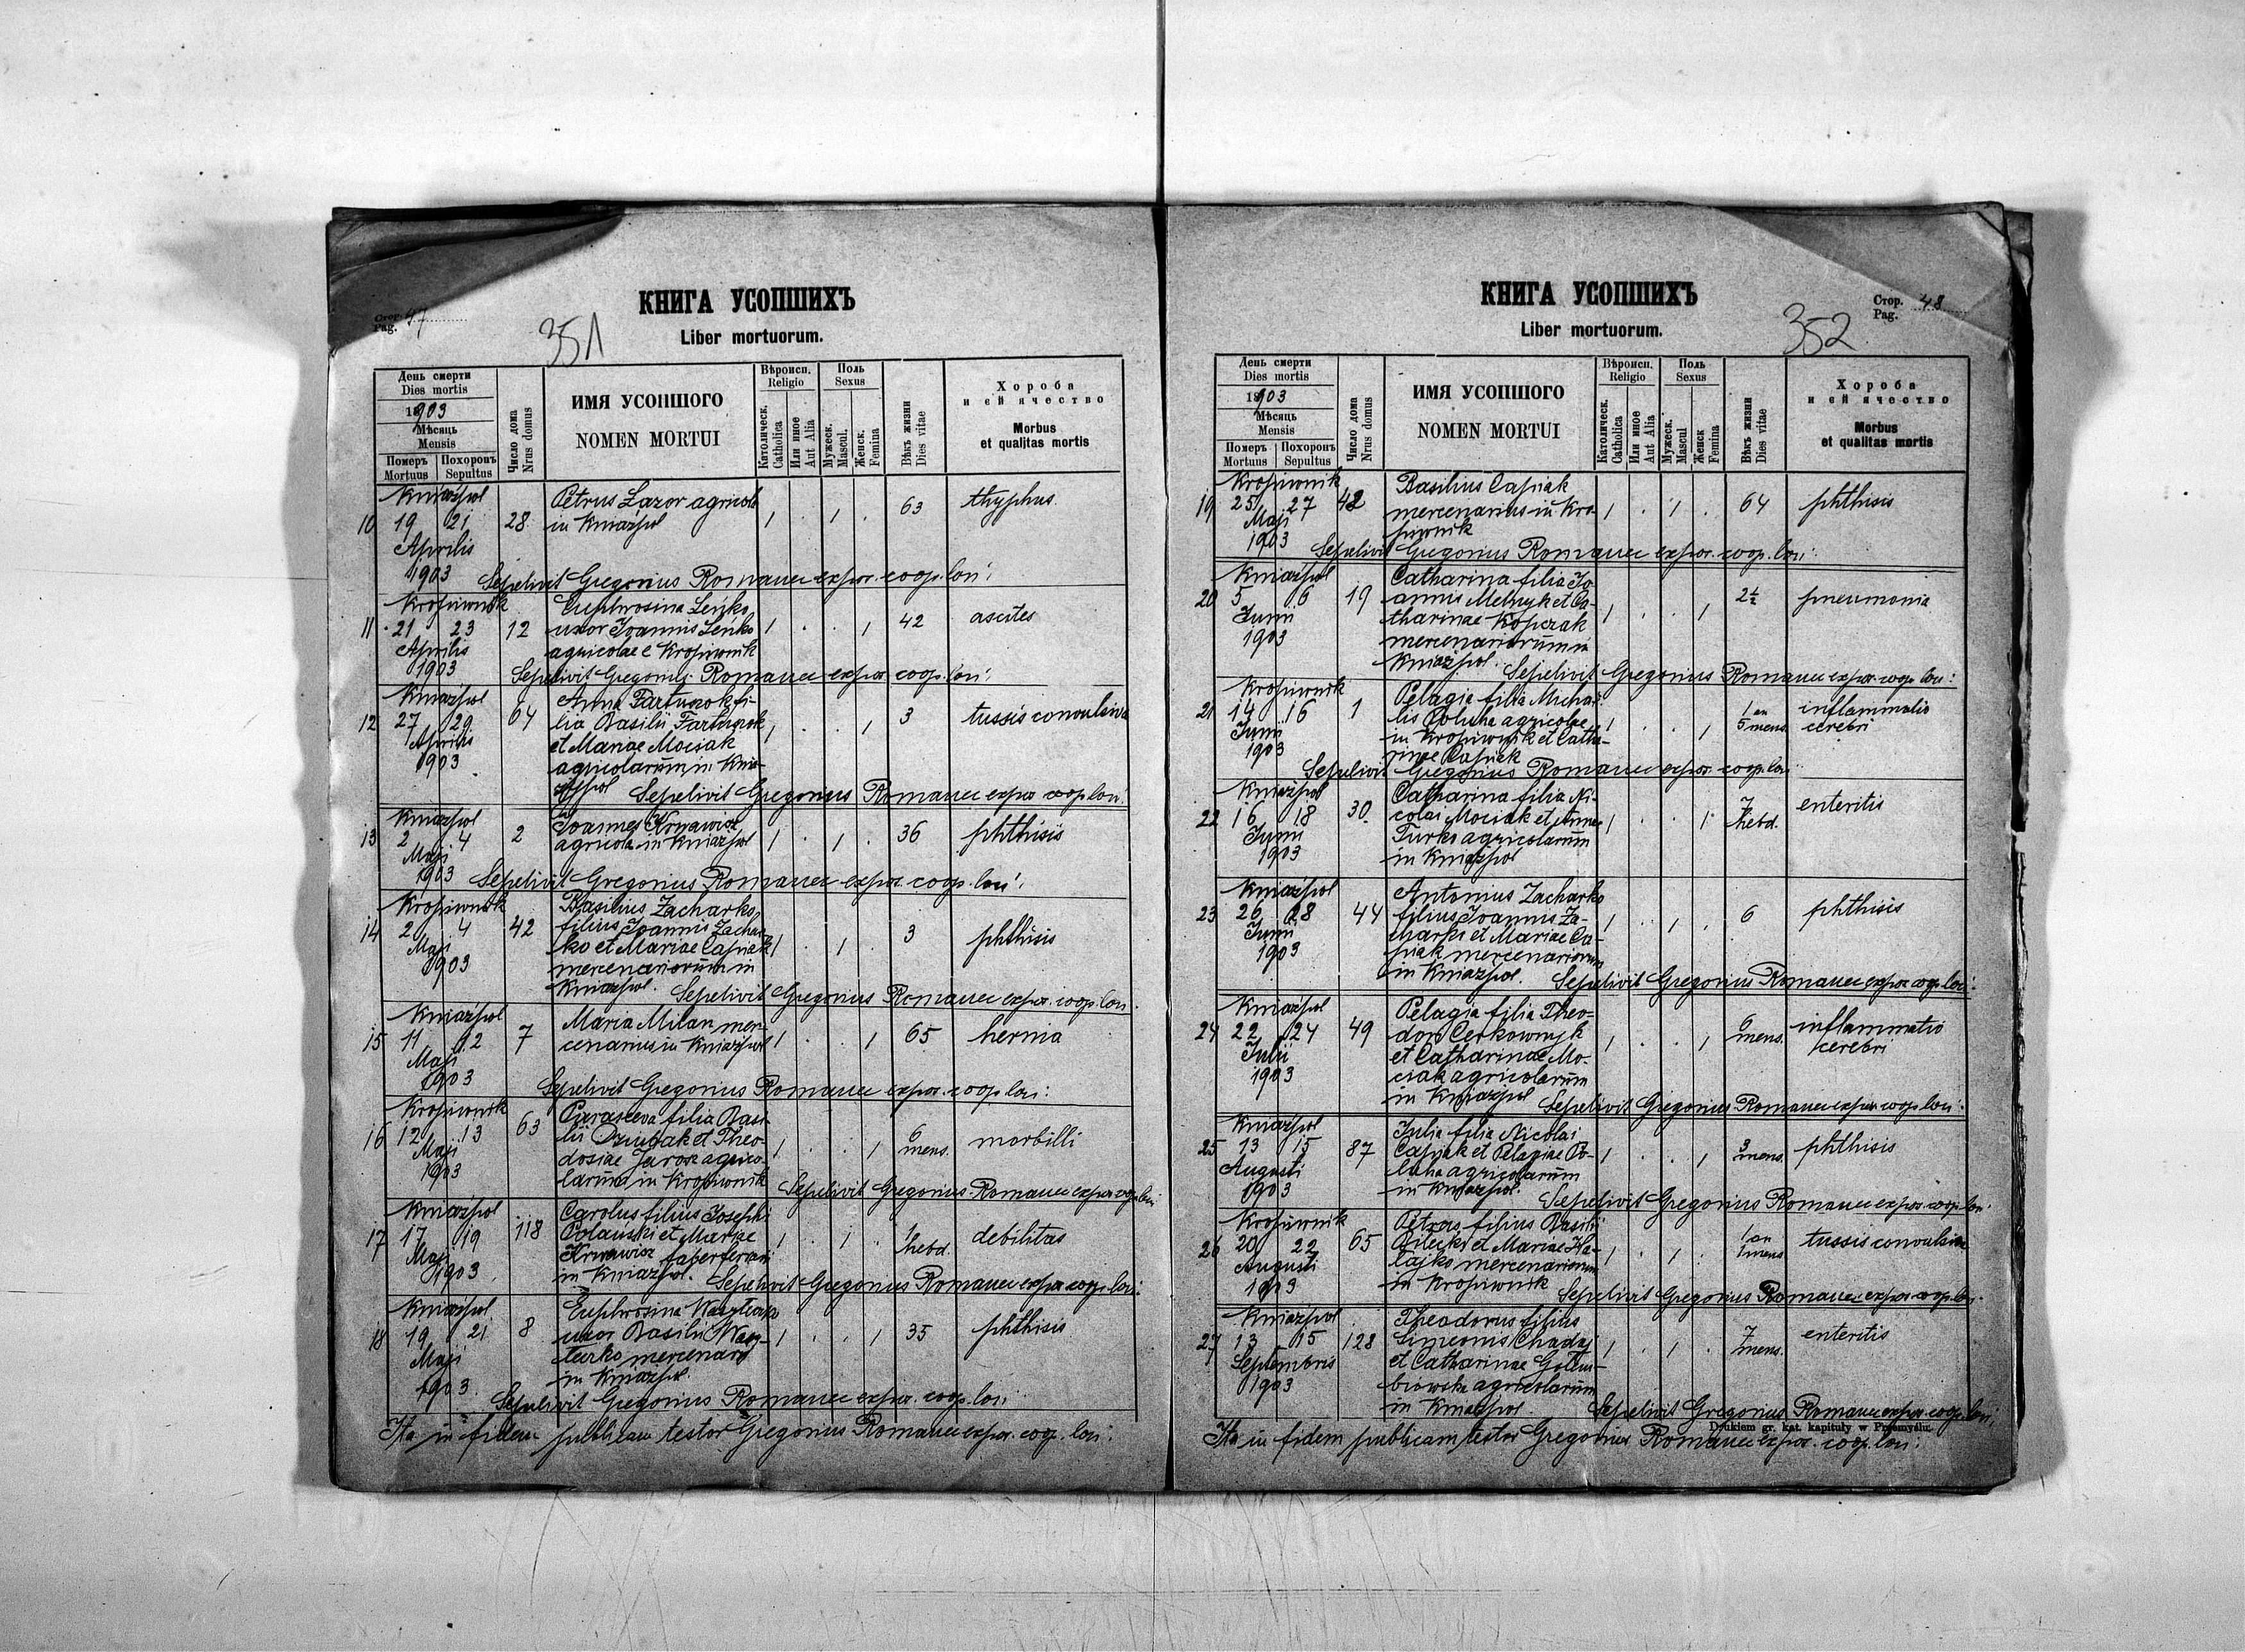 КНИГА УСОПШИХЪ
Стор.
Pag. 47
351
Liber mortuorum.
День смерти
Dies mortis
1903
Мѣсяць
Mensis
Померъ
Mortuus
Похоронъ
Sepultus
Число дома
Nrus domus
ИМЯ УСОПШОГО
NOMEN MORTUI
Вѣроисп.
Religio
Католическ.
Catholica
Или иное
Aut Alia
Поль
Sexus
Мужеск.
Mascul.
Женск.
Femina
Вѣкъ жизни
Dies vitae
Хороба
и ей ячество
Morbus
et qualitas mortis
Kniaźpol
10 19 21 28 Petrus Lazor agricola 1 . 1 . 63 thyphus.
in Kniaźpol
Aprilis
1903 Sepelivit Gregorius Romanec expos. coop. loci:
Kropiwnik
11 21 23 12 Euphrosina Leńko 1 . . 1 42 ascites
uxor Joannis Leńko
Aprilis agricolae e Kropiwnik
1903 Sepelivit Gregorius Romanec expos. coop. loci:
Kniaźpol
12 27 29 64 Anna Partuzok fi- 1 . . 1 3 tussis convulsiva
lia Basilii Partuzok
Aprilis et Mariae Mociak
1903 agricolarum in Knia-
źpol Sepelivit Gregorius Romanec expos coop loci:
Kniaźpol
13 2 4 2 Joannes Krynawicz 1 . 1 . 36 phthisis
Maji agricola in Kniaźpol
1903 Sepelivit Gregorius Romanec expos. coop. loci:
Kropiwnik
14 2 4 42 Basilius Zacharko 1 . 1 . 3 phthisis
filius Joannis Zachar-
Maji ko et Mariae Capiak
1903 mercenariorum in
Kniaźpol. Sepelivit Gregorius Romanec expos. coop. loci:
Kniaźpol
15 11 12 7 Maria Milan mer- 1 . . 1 65 hernia
cenarius in Kniaźpol
Maji
1903 Sepelivit Gregorius Romanec expos. coop loci:
Kropiwnik
16 12 13 63 Parasceva filia Basi- 1 . . 1 6 mens. morbilli
lii Dziubak et Theo-
Maji dosiae Jarosz agrico-
1903 larum in Kropiwnik Sepelivit Gregorius Romanec expos coop loci
Kniaźpol
17 17 19 118 Carolus filius Josephi 1 . 1 . 1 hebd. debilitas
Polański et Mariae
Maji Krynawicz fabri ferrarii
1903 in Kniaźpol. Sepelivit Gregorius Romanec expos coop. loci:
Kniaźpol
18 19 21 8 Euphrosina Wasylcurko 1 . . 1 35 phthisis
uxor Basilii
Maji mercenarii
1903. in Kniaźpol.
Sepelivit Gregorius Romanec expos. coop. loci:
Ita in fidem publicam testor Gregorius Romanec expos. coop. loci:
КНИГА УСОПШИХЪ
Стор.
Pag. 48
352
Liber mortuorum.
День смерти
Dies mortis
1903
Мѣсяць
Mensis
Померъ
Mortuus
Похоронъ
Sepultus
Число дома
Nrus domus
ИМЯ УСОПШОГО
NOMEN MORTUI
Вѣроисп.
Religio
Католическ.
Catholica
Или иное
Aut Alia
Поль
Sexus
Мужеск.
Mascul
Женск
Femina
Вѣкъ жизни
Dies vitae
Хороба
и ей ячество
Morbus
et qualitas mortis
Kropiwnik
19 25 27 42 Basilius Capiak 1 . 1 . 64 phthisis
Maji mercenarius in Kro-
1903 piwnik
Sepelivit Gregorius Romanec expos. coop. loci:
Kniaźpol
20 5 6 19 Catharina filia Jo- 1 . . 1 2½ pneumonia
annis Melnyk et Ca-
Junii tharinae Kopczak
1903 mercenariorum in
Kniaźpol. Sepelivit Gregorius Romanec expos. coop. loci:
Kropiwnik
21 14 16 1 Pelagia filia Michae- 1 . . 1 1 an 5 mens. inflammatio cerebri
lis Poluha agricolae
Junii in Kropiwnik et Catha-
1903 rinae Capiak
Sepelivit Gregorius Romanec expos. coop. loci
Kniaźpol
22 16 18 30. Catharina filia Ni- 1 . . 1 7 hebd. enteritis
colai Mociak et Annae
Junii Turko agricolarum
1903 in Kniaźpol
Kniaźpol
23 26 28 44 Antonius Zacharko 1 . 1 . 6 phthisis
filius Joannis Za-
Junii charko et Mariae Ca-
1903 piak mercenariorum
in Kniaźpol. Sepelivit Gregorius Romanec expos coop. loci:
Kniaźpol
24 22 24 49 Pelagia filia Theo- 1 . . 1 6 mens. inflammatio cerebri
dori Cerkownyk
Julii et Catharinae Mo-
1903 ciak agricolarum
in Kniaźpol Sepelivit Gregorius Romanec expos coop loci:
Kniaźpol
25 13 15 87 Julia filia Nicolai 1 . . 1 3 mens. phthisis
Capiak et Pelagiae Po-
Augusti luha agricolarum
1903 in Kniaźpol. Sepelivit Gregorius Romanec expos. coop. loci:
Kropiwnik
26 20 22 65 Petrus filius Basilii 1 . 1 . 1 an 1 mens tussis convulsiva
Bilecki et Mariae Ha-
Augusti łajko mercenariorum
1903 in Kropiwnik Sepelivit Gregorius Romanec expos coop. loci.
Kniaźpol
27 13 15 128 Theodorus filius 1 . 1 . 7 mens. enteritis
Simeonis Chadaj
Septembris et Catharinae Gołem-
1903 biowska agricolarum
in Kniaźpol. Sepelivit Gregorius Romanec expos coop loci:
Drukiem gr. kat. kapituły w Przemyślu.
Ita in fidem publicam testor Gregorius Romanec expos. coop. loci: